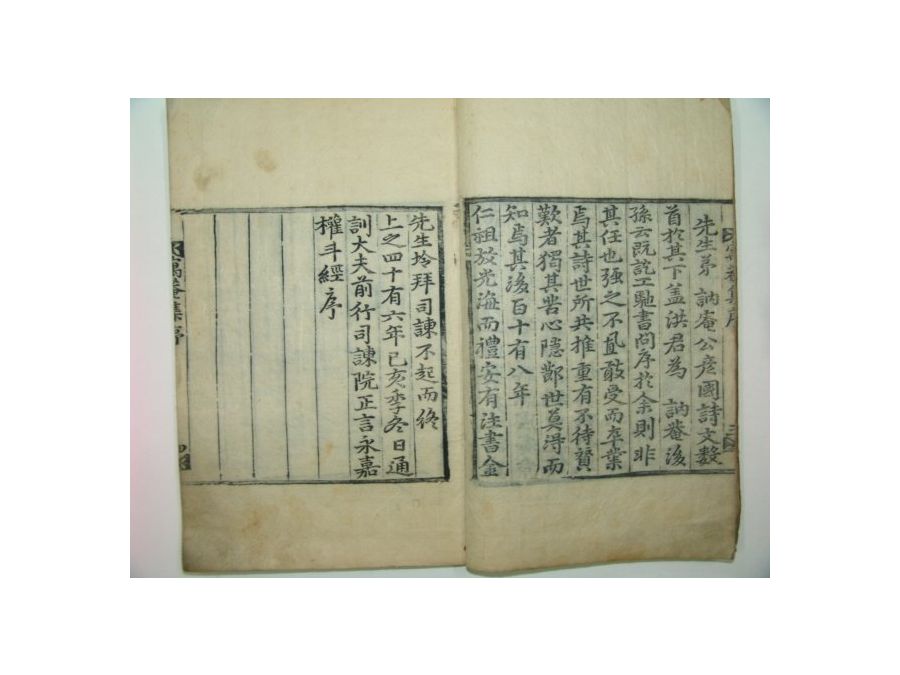 先生弟 訥庵公彦國詩文數
首於其下盖洪君為 訥菴後
孫云既訖工馳書問序於余則非
其任也强之不置敢受而卒業
焉其詩世所共推重有不待贊
歎者獨其苦心隱鄰世莫得而
知焉其後百十有八年
仁祖放光海而禮安有注書金
先生坽拜司諫不起而終
上之四十有六年己亥季冬日通
訓大夫前行司諫院正言永嘉
權斗經序